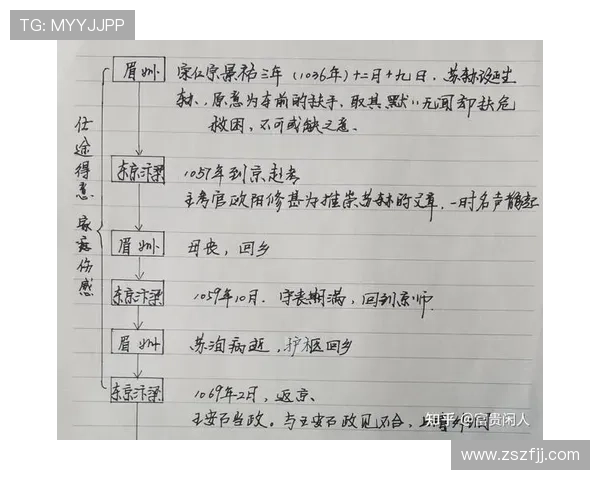 TG: MYYJJPP
眉州
宋仁宗景祐三年(1036年)十二月十九日,苏轼诞生
轼、原意为车前的扶手,取其默默无闻却扶危
救困,不可或缺之意。
仕途得意 家庭伤感
东京汴梁
1057年到京赶考
主考官欧阳修甚为推崇苏轼的文章,一时名声鹊起
眉州
母丧,回乡
东京汴梁
1059年10月.守丧期满,回到京师.
眉州
苏洵病逝,护柩回乡
东京汴梁
1069年2月,返京、
王安石当政。与王安石政见不合,
知乎 @富贵闲人
www.zszfjj.com